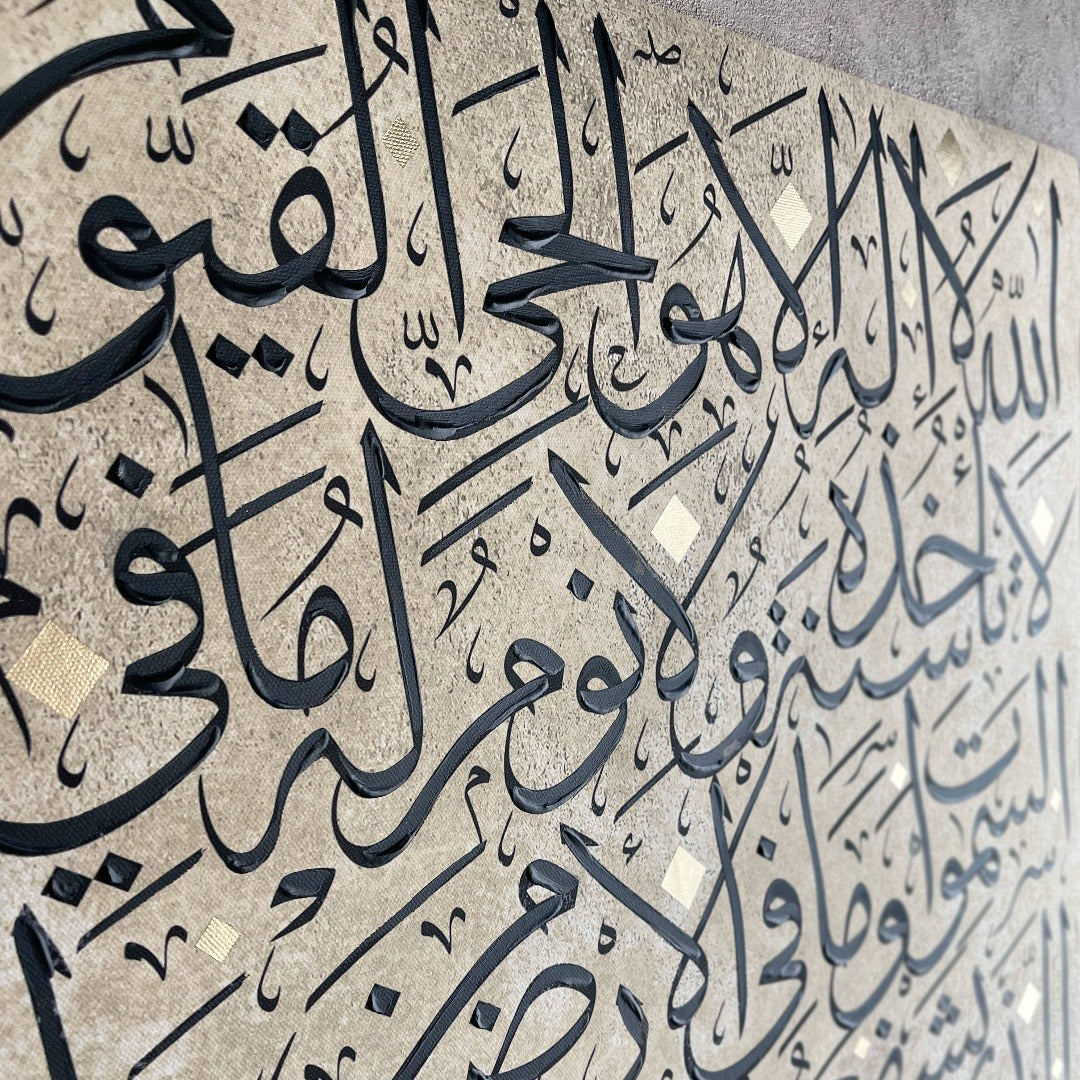 اَللّٰهُ لَا اِلٰهَ اِلَّا هُوَ الْحَيُّ الْقَيُّو
لَا تَأْخُذُهُ سِنَةٌ وَلَا نَوْمٌ لَهُ مَا فِي
السَّمٰوَاتِ وَمَا فِي الْاَرْضِ